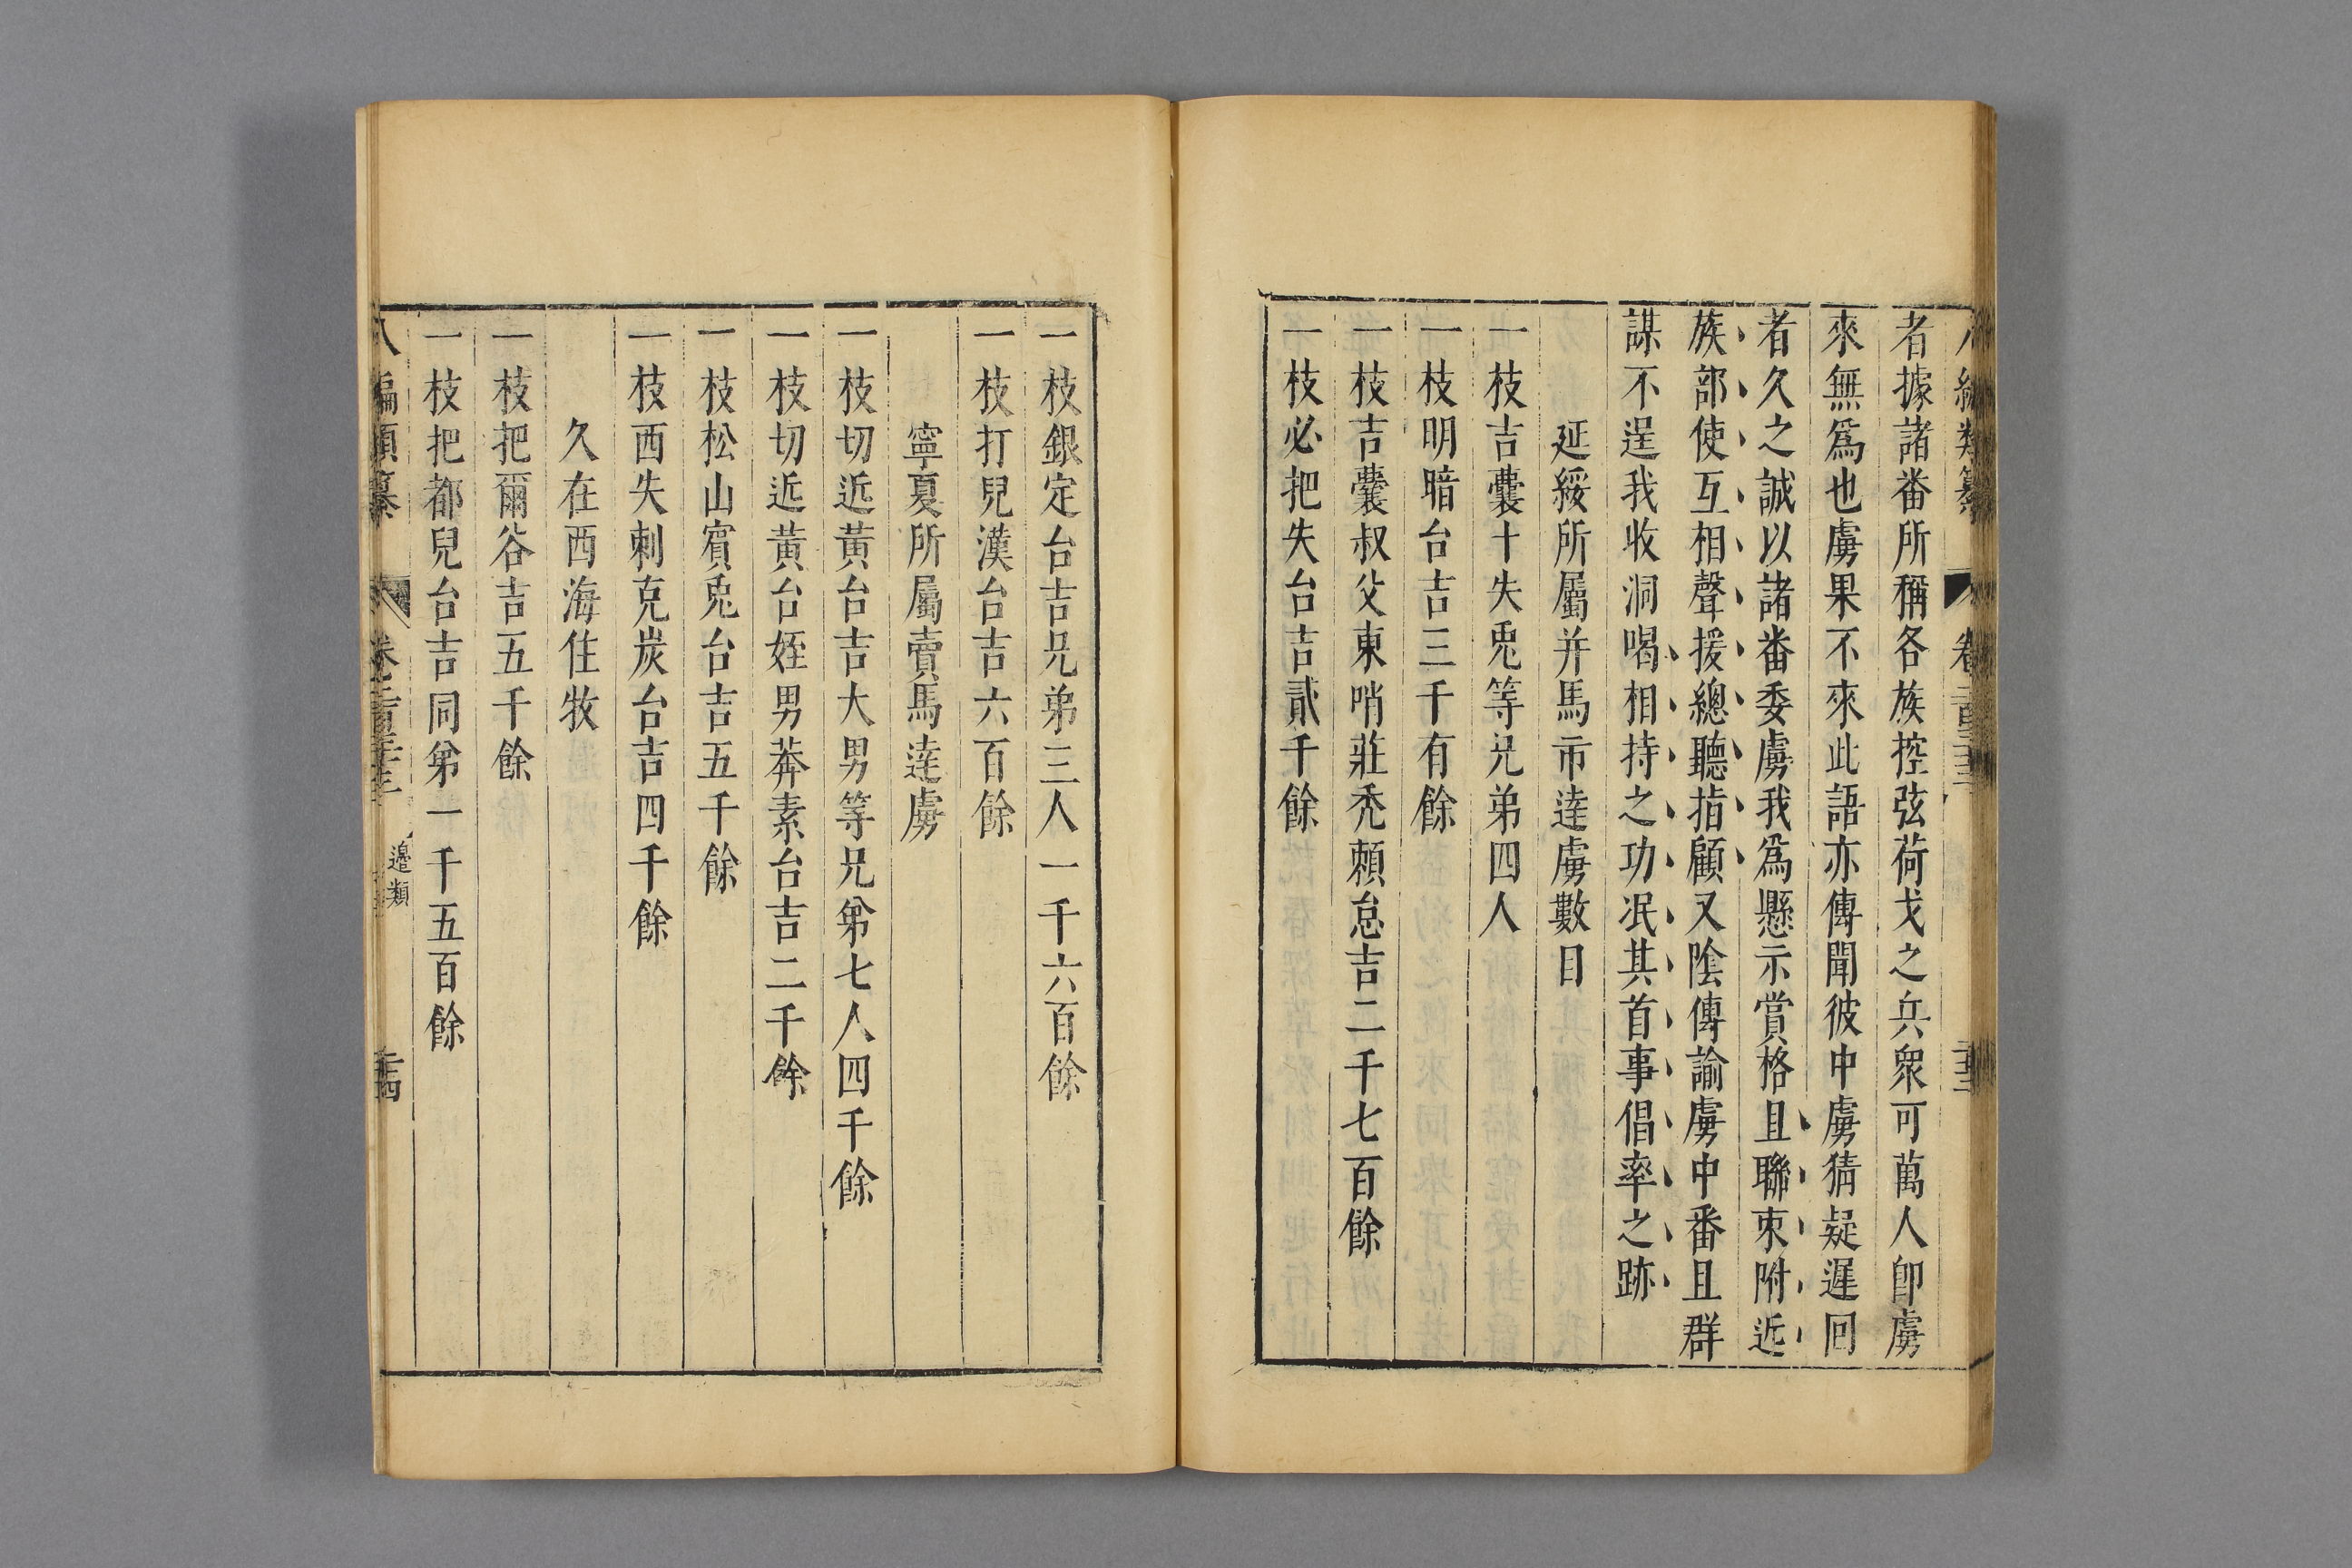 者據諸番所稱各族控弦荷戈之兵衆可萬人卽虜
來無爲也虜果不來此語亦傳聞彼中虜猜疑遲囘
者久之誠以諸番委虜我爲懸示賞格且聯束附近
族部使互相聲援總聽指顧又陰傳諭虜中番且群
謀不逞我收洞喝相持之功冺其首事倡率之跡
延綏所屬并馬市逹虜數目
一枝吉囊十失兎等兄弟四人
一枝明暗台吉三千有餘
一枝吉囊叔父東哨莊禿賴怠吉二千七百餘
一枝必把失台吉貳千餘
一枝銀定台吉兄弟三人一千六百餘
一枝打兒漢台吉六百餘
寧夏所屬賣馬逹虜
一枝切近黃台吉大男等兄弟七人四千餘
一枝切近黃台姪男莾素台吉二千餘
一枝松山賓兎台吉五千餘
一枝西失剌克炭台吉四千餘
久在西海住牧
一枝把爾谷吉五千餘
一枝把都兒台吉同弟一千五百餘
八編類纂 邉類